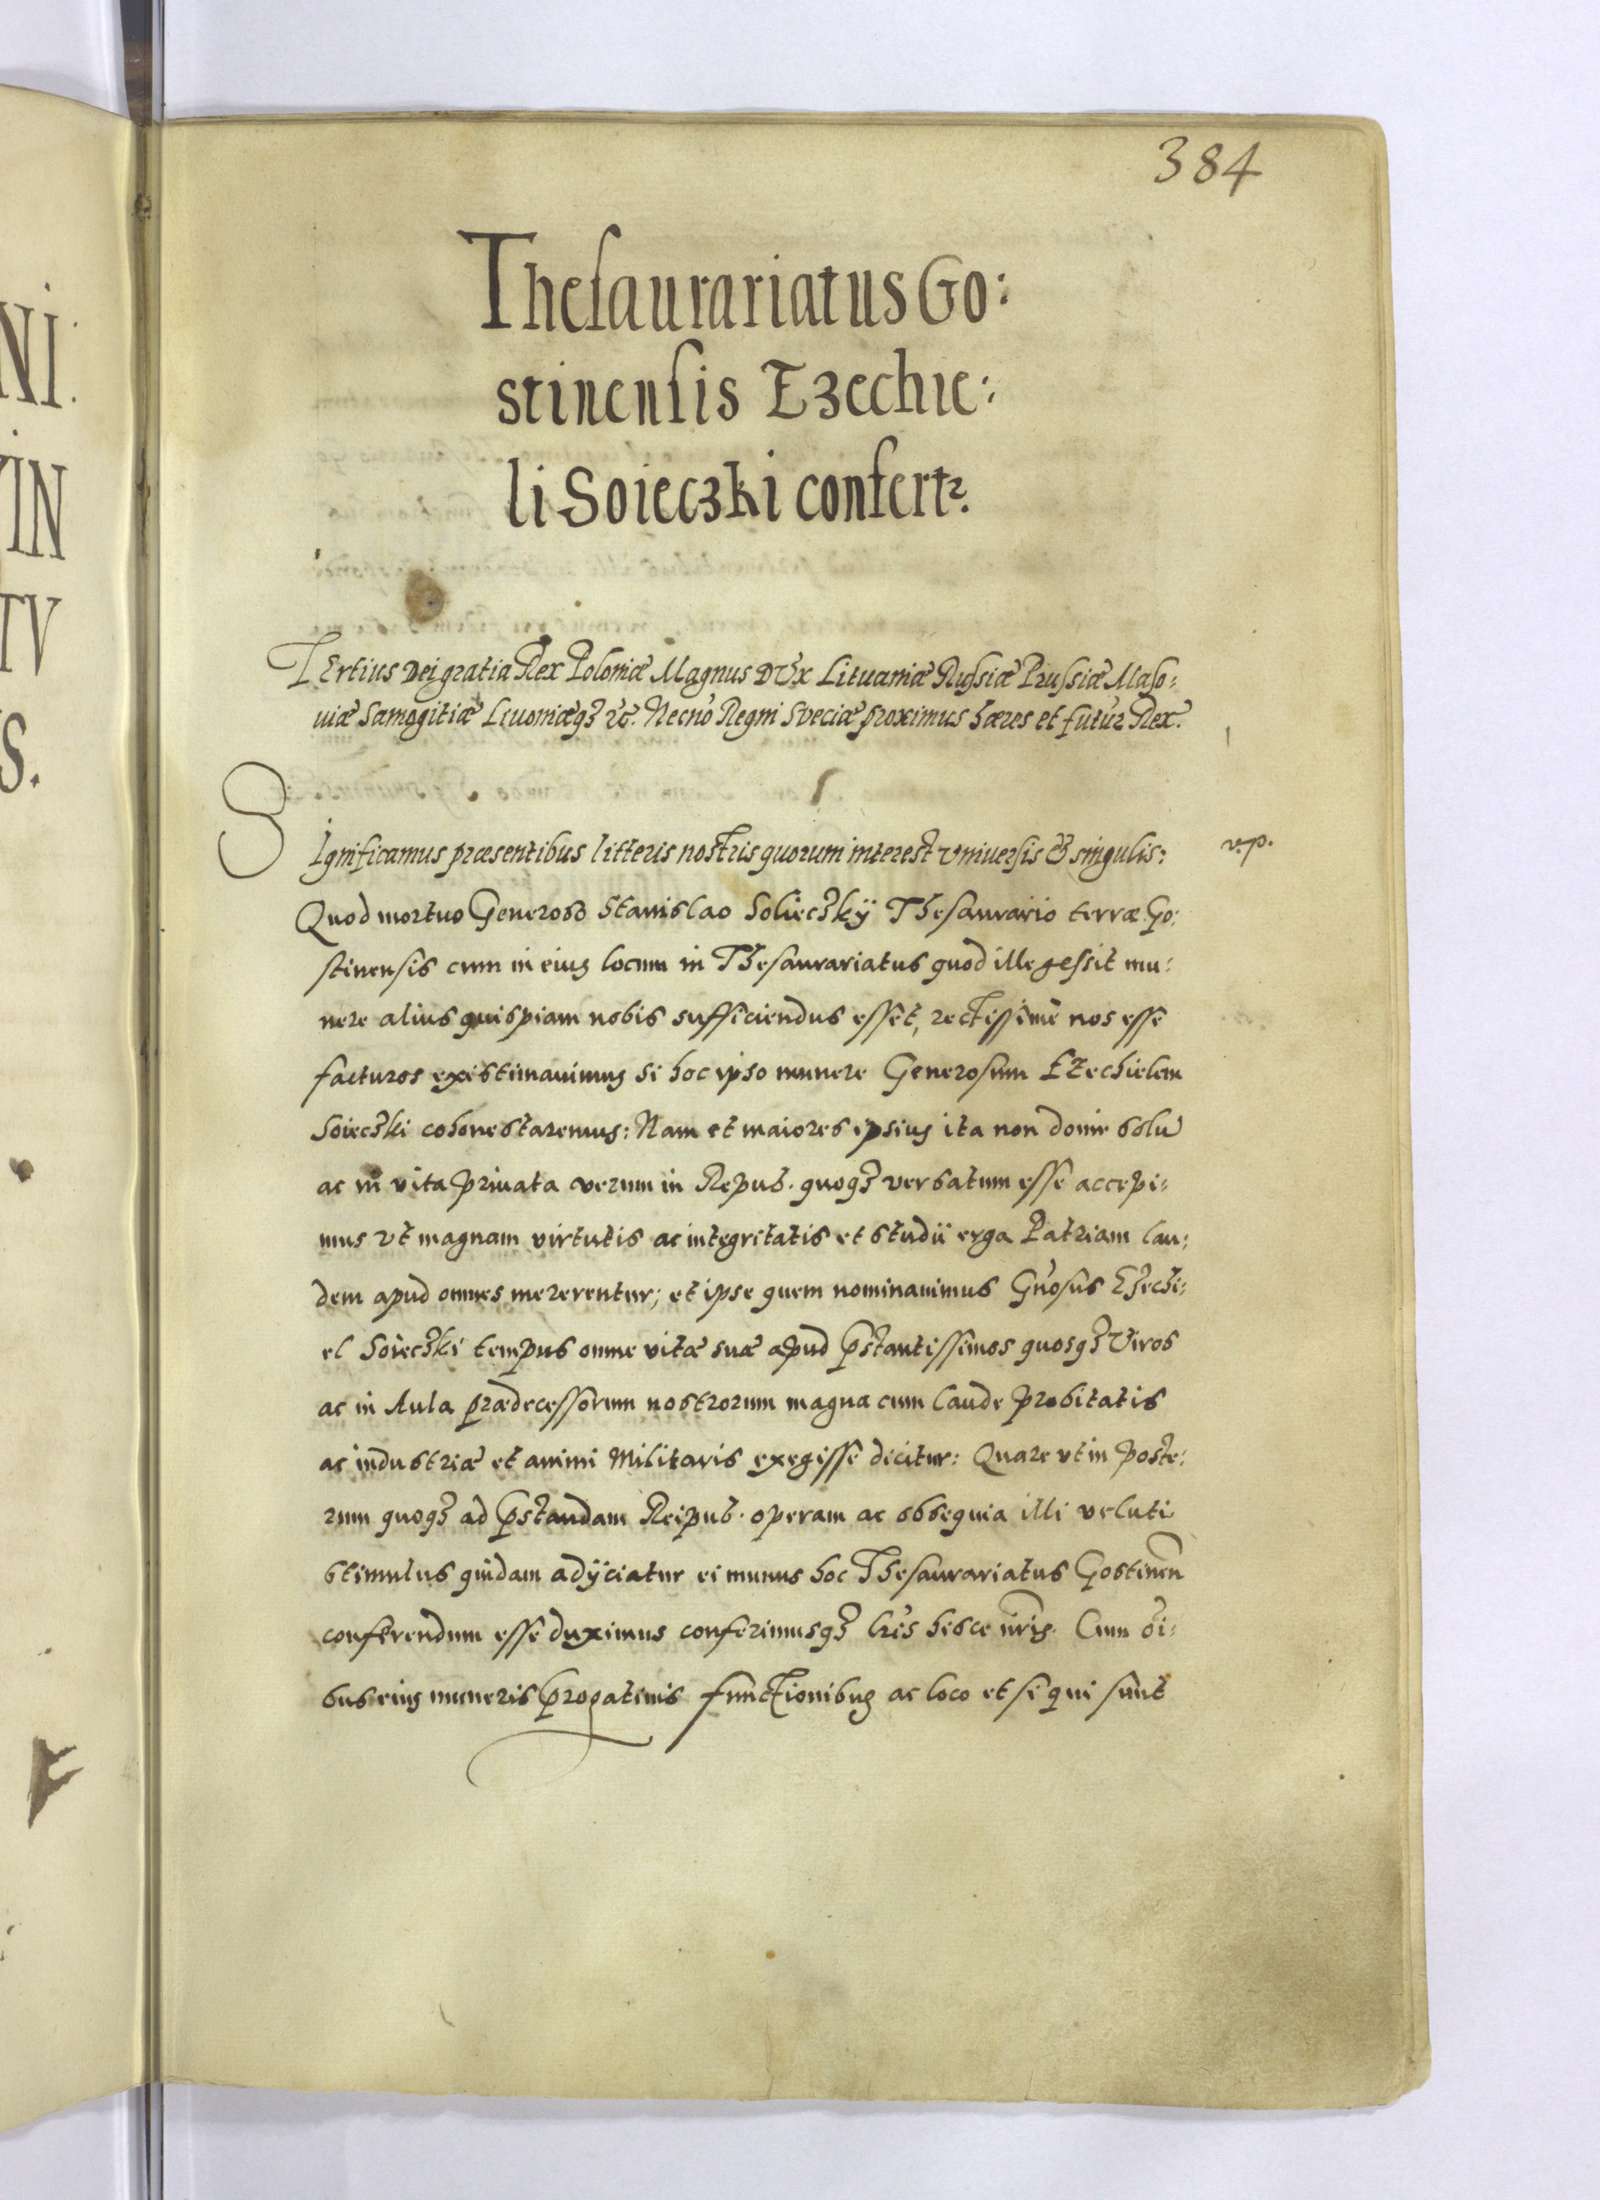 384
Thesaurariatus Go:
stinensis Ezechie:
li Soieczki confertr.
TErtius Dei gratia Rex Poloniæ Magnus DVx Lituaniæ Russiæ Prussiæ Maso:
uiæ Samogitiæ Liuoniæq3 &c. Necnō Regni Sveciæ proximus hæres et futur Rex.
SIgnificamus præsentibus litteris nostris quorum interest vniuersis & singulis: v.p.
Quod mortuo Generoso Stanislao Solieczkÿ Thesaurario terræ Go:
stinensis cum in eius locum in Thesaurariatus quod ille gessit mu:
nere alius quispiam nobis sufficiendus esset, rectissime nos esse
facturos existimauimus si hoc ipso munere Generosum Ezechielem
Soieczki cohonestaremus: Nam et maiores ipsius ita non domi solū
ac in vita priuata verum in Repub. quoq3 versatum esse accepi:
mus vt magnam virtutis ac integritatis et studii erga Patriam lau:
dem apud omnes mererentur; et ipse quem nominauimus Gnosus Ezechi:
el Soieczki tempus omne vitæ suæ apud pstantissimos quosq3 Viros
ac in Aula prædecessorum nostrorum magna cum laude probitatis
ac industriæ et animi Militaris exegisse dicitur: Quare vt in poste:
rum quoq3 ad pstandam Reipub. operam ac obsequia illi veluti
stimulus quidam adÿciatur ei munus hoc Thesaurariatus Gostinen
conferendum esse duximus conferimusq3 lris hisce nris. Cum oi:
bus eius muneris progatiuis functionibus ac loco et si qui sunt
NI.
IN
TV
S.